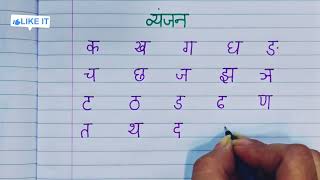 LIKE IT
व्यंजन
क ख ग घ ङ
च छ ज झ ञ
ट ठ ड ढ ण
त थ द